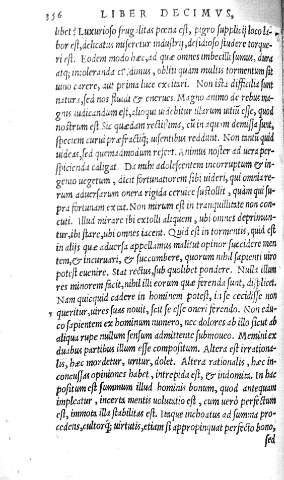 356 LIBER DECIMVS,
libet? Luxurioso frugalitas pœna est, pigro supplicij loco la-
bor est, delicatus miseretur industrij, desidioso studere torque-
ri est. Eodem modo hæc, ad quæ omnes imbecilli sumus, dura
atq; intoleranda credimus, obliti quàm multis tormentum sit
uino carere, aut prima luce excitari. Non ista difficilia sunt
natura, sed nos fluidi & enerues. Magno animo de rebus ma-
gnis iudicandum est, alioqui uidebitur illarum uitiũ esse, quod
nostrum est. Sic quædam rectißima, cũ in aquam demissa sunt,
speciem curui præfractiq; uisentibus reddunt. Non tantũ quid
uideas, sed quemadmodum refert. Animus noster ad uera per-
spicienda caligat. Da mihi adolescentem incorruptum & in-
genio uegetum, dicet fortunatiorem sibi uideri, qui omnia re-
rum aduersarum onera rigida ceruice sustollit, quàm qui su-
pra fortunam extat. Non mirum est in tranquillitate non con-
cuti. Illud mirare ibi extolli aliquem, ubi omnes deprimun-
tur, ibi stare, ubi omnes iacent. Quid est in tormentis, quid est
in alijs quæ aduersa appellamus mali? ut opinor succidere men-
tem, & incuruari, & succumbere, quorum nihil sapienti uiro
potest euenire. Stat rectus, sub quolibet pondere. Nulla illum
res minorem facit, nihil illi eorum quæ ferenda sunt, displicet.
Nam quicquid cadere in hominem potest, in se cecidisse non
queritur, uires suas nouit, scit se esse oneri ferendo. Non edu-
co sapientem ex hominum numero, nec dolores ab illo sicut ab
aliqua rupe nullum sensum admittente submoueo. Memini ex
duabus partibus illum esse compositum. Altera est irrationa-
lis, hæc mordetur, uritur, dolet. Altera rationalis, hæc in-
concussas opiniones habet, intrepida est, & indomita. In hac
positum est summum illud hominis bonum, quod antequam
impleatur, incerta mentis uolutatio est, cum uerò perfectum
est, immota illa stabilitas est. Itaque inchoatus ad summa pro-
cedens, cultorq; uirtutis, etiam si appropinquat perfecto bono,
sed